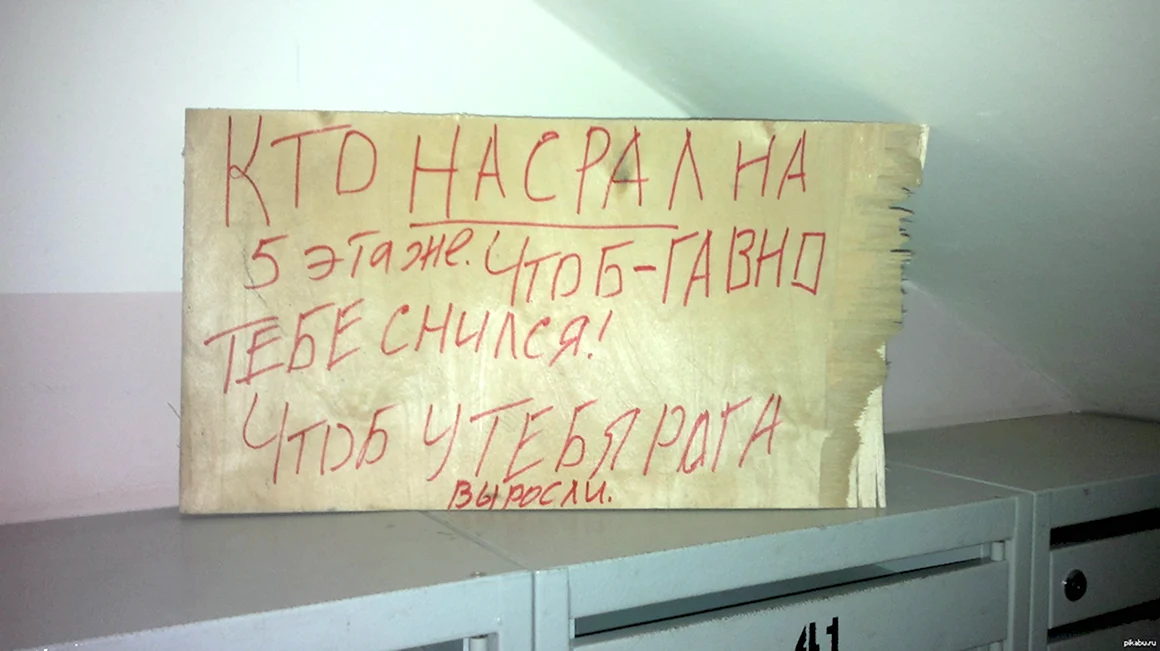 КТО НАСРАЛ НА
5 этаже. ЧТОБ-ГАВНО
ТЕБЕ СНИЛСЯ!
ЧТОБ У ТЕБЯ РОГА
ВЫРОСЛИ.
41
pikabu.ru